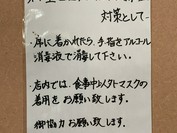 対策として
・席に着かれたら、手指をアルコール
消毒液で消毒して下さい。
・店内では、食事中以外マスクの
着用をお願い致します。
御協力お願い致します。